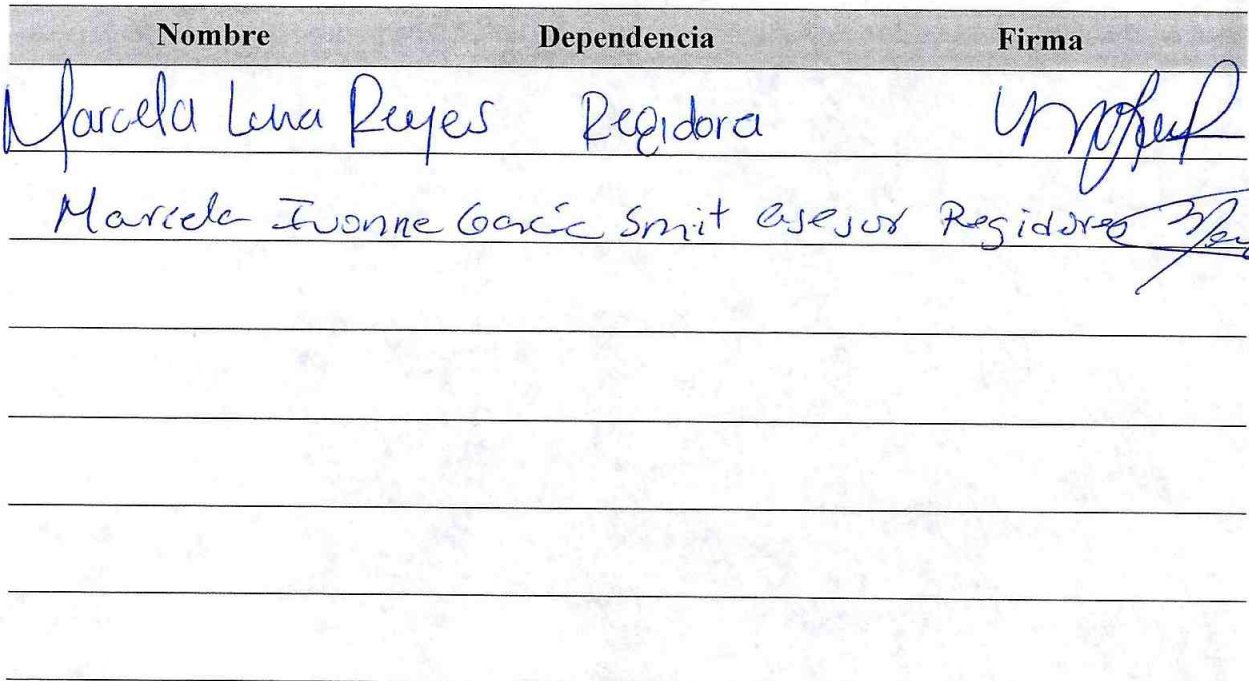 Nombre Dependencia Firma
Marcela Luna Reyes Regidora
Marcela Ivonne García Smit asesor Regidores